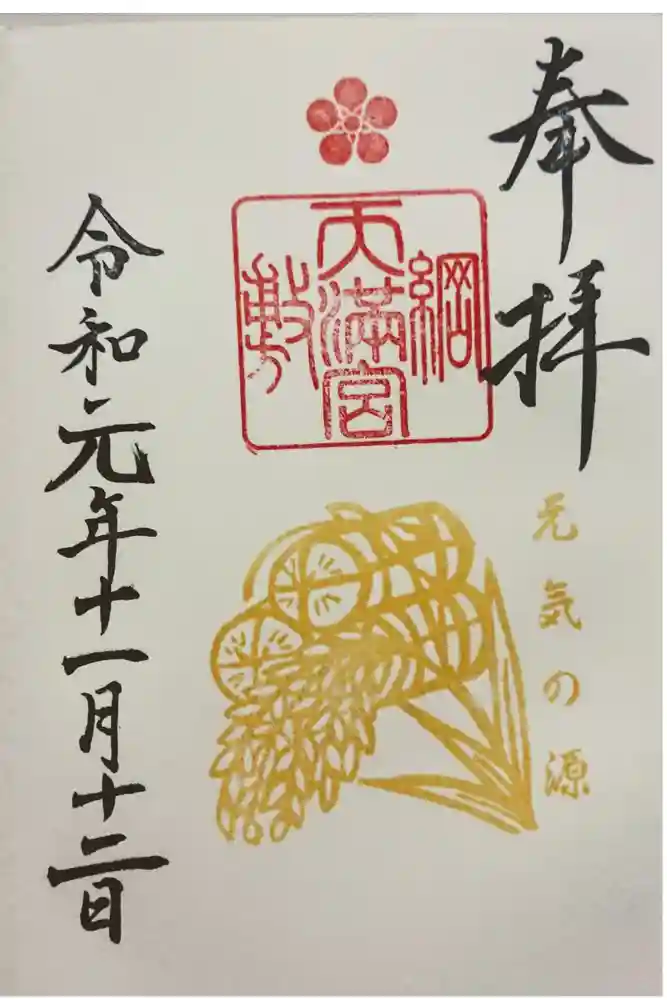 奉拝
元気の源
綱
天満宮
敷
令和元年十一月十二日